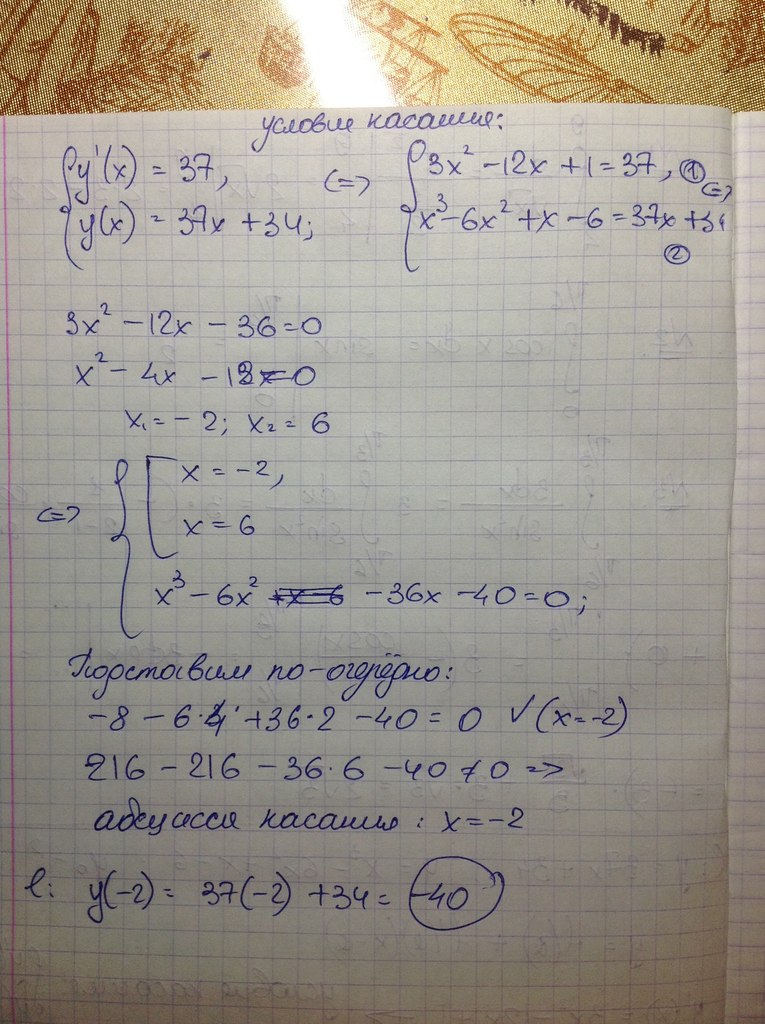 условие касания:
{ y'(x) = 37, <=> { 3x² - 12x + 1 = 37, ① <=>
{ y(x) = 37x + 34; { x³ - 6x² + x - 6 = 37x + 34
②
3x² - 12x - 36 = 0
x² - 4x - 12 = 0
x₁ = - 2; x₂ = 6
{ [ x = -2,
<=> { [ x = 6
{ x³ - 6x² - 36x - 40 = 0;
Подставим по-очерёдно:
-8 - 6·4 + 36·2 - 40 = 0 ✓ (x = -2)
216 - 216 - 36·6 - 40 ≠ 0 =>
абсцисса касания: x = -2
l: y(-2) = 37(-2) + 34 = -40